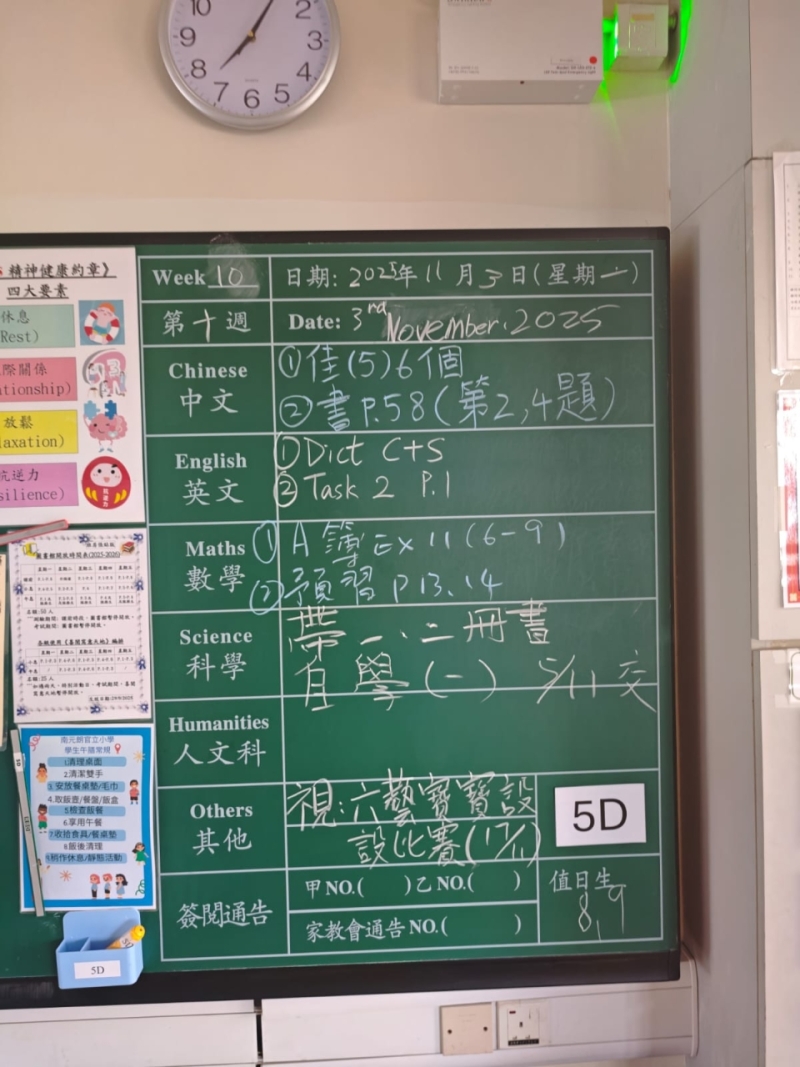 10
2
3
4
5
6
7
8
精神健康約章》
四大要素
休息
Rest)
際關係
ationship)
放鬆
axation)
抗逆力
silience)
圖書館開放時間表(2025-2026)
南元朗官立小學
學生午膳常規
1清理桌面
2.清潔雙手
3.安放餐桌墊/毛巾
4.取飯壺/餐盤/飯盒
5檢查飯餐
6.享用午餐
7收拾食具/餐桌墊
8飯後清理
9稍作休息/靜態活動
5D
Week 10
日期: 2025年 11 月 3 日(星期一)
第十週
Date: 3rd November, 2025
Chinese
中文
①佳(5)6個
②書P.58(第2,4題)
English
英文
①Dict C+S
②Task 2 P.1
Maths
數學
① A 簿 Ex 11 (6-9)
②預習 P 13、14
Science
科學
帶一、二冊書
自學(一) 5/11 交
Humanities
人文科
Others
其他
視:六藝寶寶設
設比賽(17/11)
5D
簽閱通告
甲NO.( )乙NO.( )
家教會通告NO.( )
值日生
8,9